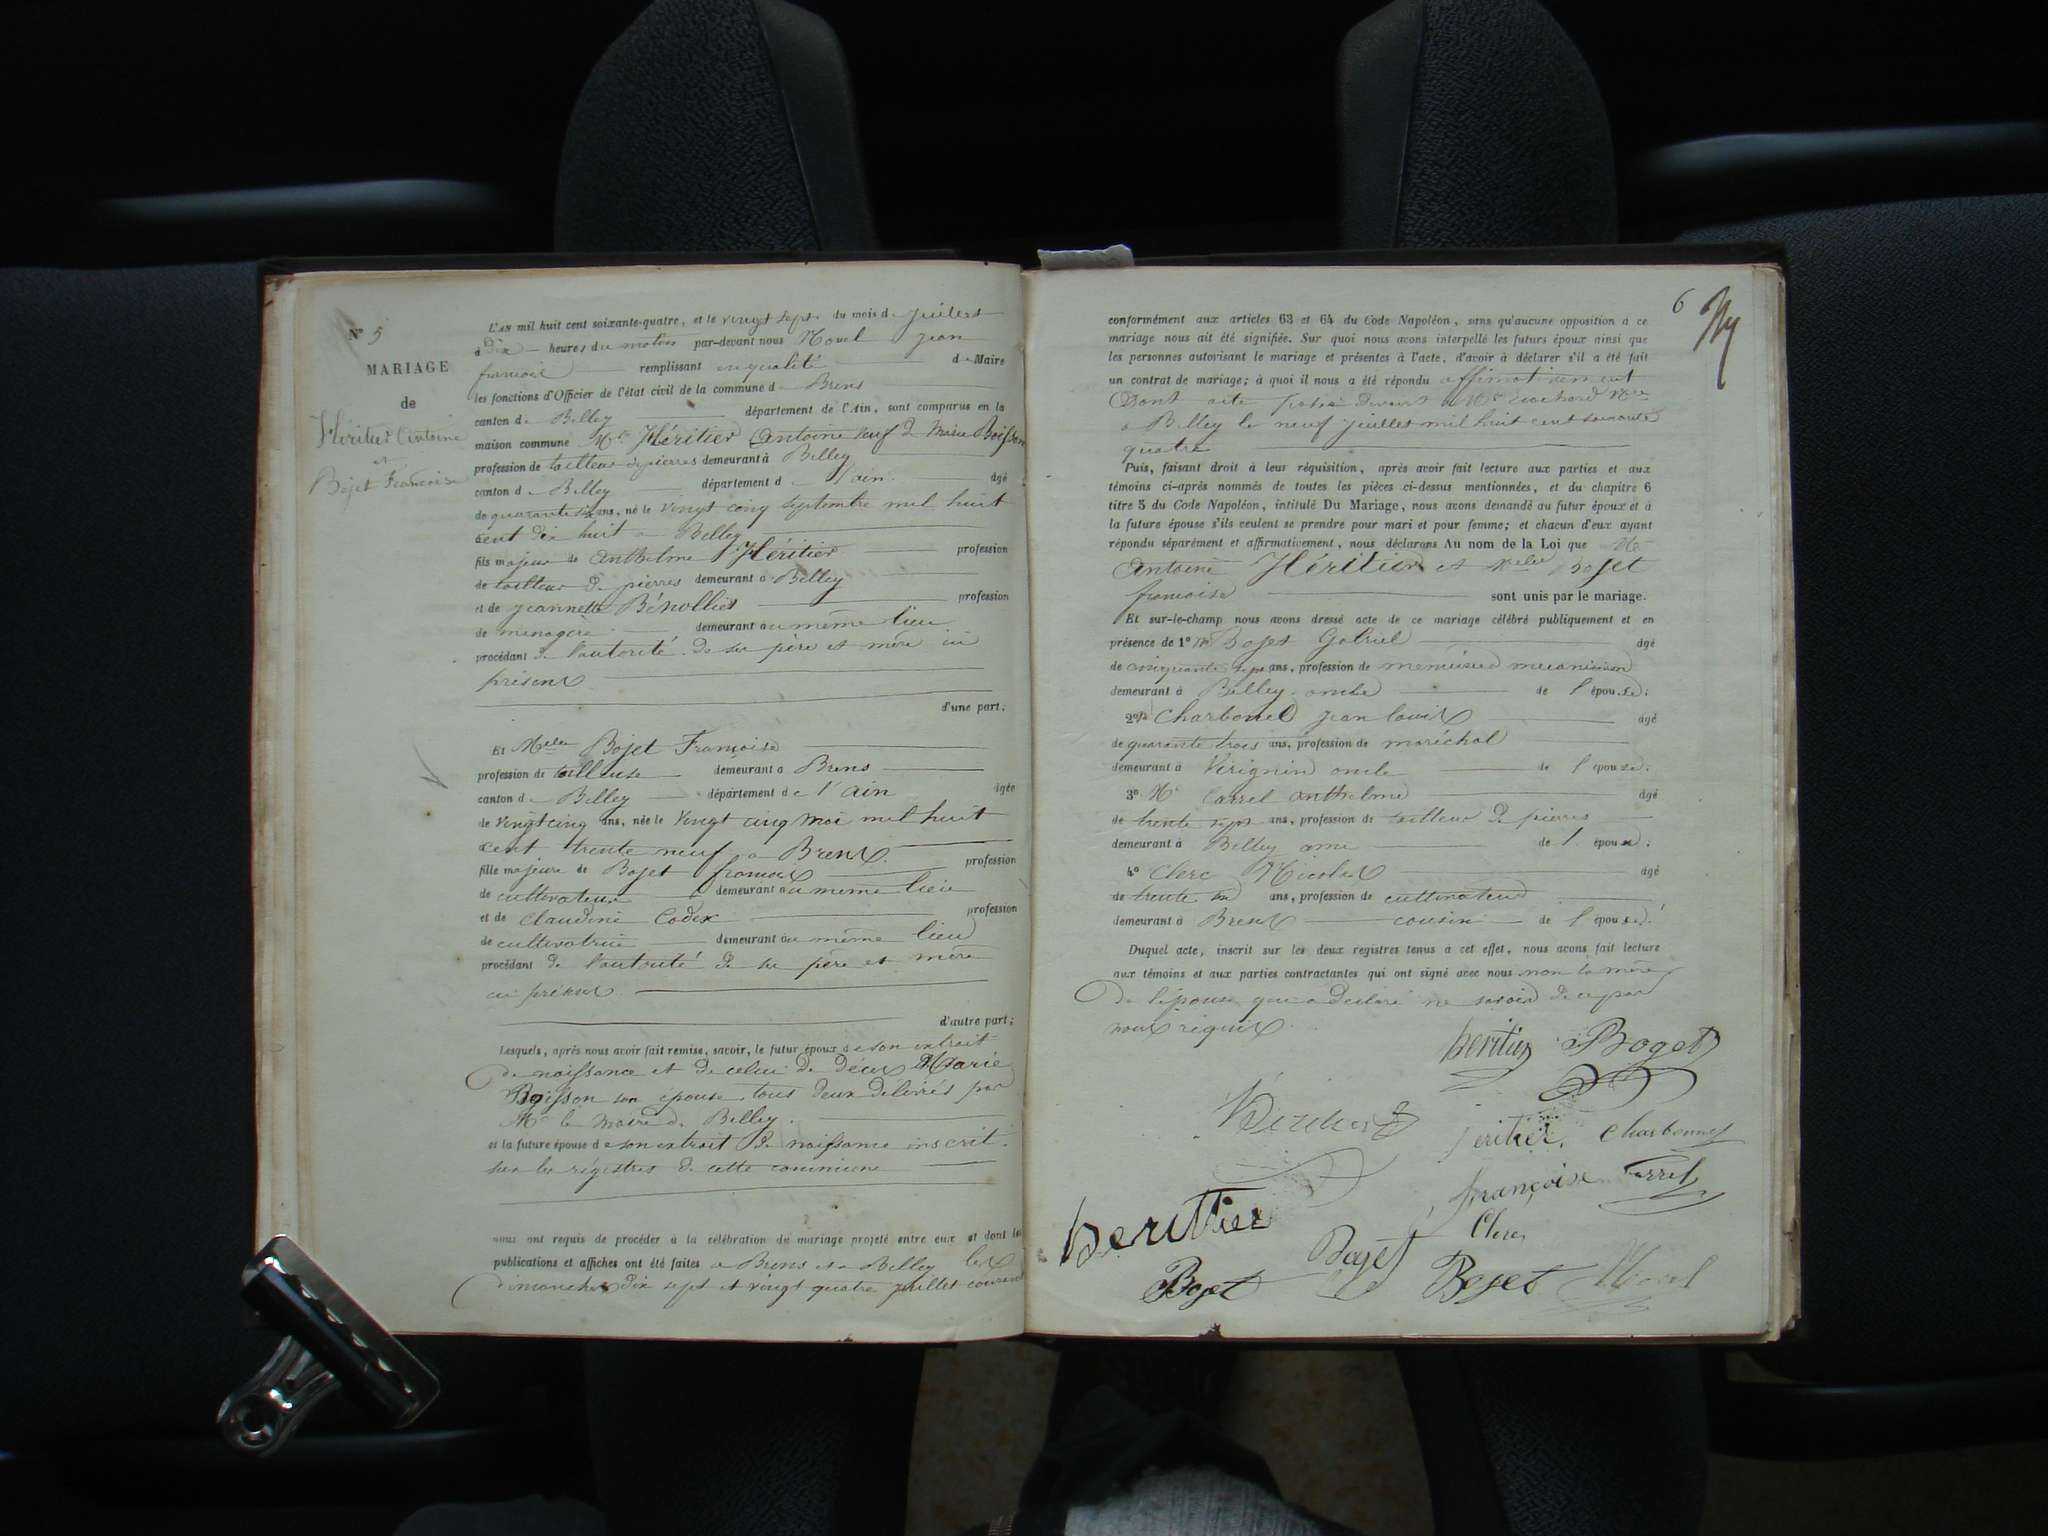 N° 5
MARIAGE
de
Héritier Antoine
et
Bojet Francoise
L'AN mil huit cent soixante-quatre, et le vingt sept du mois de juillet
à dix heures du matin par-devant nous Morel jean
francois remplissant en qualité de Maire
les fonctions d'Officier de l'état civil de la commune de Brens
canton de Belley département de l'Ain, sont comparus en la
maison commune Mr Héritier Antoine veuf de Marie Boisson
profession de tailleur de pierres demeurant à Belley
canton de Belley département de l'ain âgé
de quarante six ans, né le vingt cinq septembre mil huit
cent dix huit à Belley
fils majeur de Anthelme Héritier profession
de tailleur de pierres demeurant à Belley
et de jeannette profession
de menagère demeurant au même lieu
procédant de l'autorité de ses père et mère ici
présent
d'une part;
Et Melle Bojet Françoise
profession de tailleuse demeurant à Brens
canton de Belley département de l'ain âgée
de vingt cinq ans, née le vingt cinq mai mil huit
cent trente neuf à Brens
fille majeure de Bojet francois profession
de cultivateur demeurant au même lieu
et de Claudine Codex profession
de cultivatrice demeurant au même lieu
procédant de l'autorité de ses père et mère
ici présent
d'autre part;
Lesquels, après nous avoir fait remise, savoir, le futur époux de son extrait
de naissance et de celui de décès Marie
Boisson son épouse tous deux delivrés par
Mr le maire de Belley.
et la future épouse de son extrait de naissance inscrit
sur les régistres de cette commune
nous ont requis de procéder à la célébration du mariage projeté entre eux et dont les
publications et affiches ont été faites à Brens et à Belley les
dimanches dix sept et vingt quatre juillet courant
6
conformément aux articles 63 et 64 du Code Napoléon, sans qu'aucune opposition à ce
mariage nous ait été signifiée. Sur quoi nous avons interpellé les futurs époux ainsi que
les personnes autorisant le mariage et présentes à l'acte, d'avoir à déclarer s'il a été fait
un contrat de mariage; à quoi il nous a été répondu affimativement
Dont acte passé devant Me
à Belley le neuf juillet mil huit cent soixante
quatre
Puis, faisant droit à leur réquisition, après avoir fait lecture aux parties et aux
témoins ci-après nommés de toutes les pièces ci-dessus mentionnées, et du chapitre 6
titre 5 du Code Napoléon, intitulé Du Mariage, nous avons demandé au futur époux et à
la future épouse s'ils veulent se prendre pour mari et pour femme; et chacun d'eux ayant
répondu séparément et affirmativement, nous déclarons Au nom de la Loi que Mr
Antoine Héritier et Melle Bojet
francoise sont unis par le mariage.
Et sur-le-champ nous avons dressé acte de ce mariage célébré publiquement et en
présence de 1° Mr Bojet Gabriel âgé
de cinquante sept ans, profession de menuisier mecanicien
demeurant à Belley oncle de l'épouse;
2° Mr Charbonel jean louis âgé
de quarante trois ans, profession de maréchal
demeurant à Virignin oncle de l'épouse;
3° Mr Carrel Anthelme âgé
de trente sept ans, profession de tailleur de pierres
demeurant à Belley ami de l'époux;
4° Clerc Nicolas âgé
de trente ans, profession de cultivateur
demeurant à Brens cousin de l'épouse;
Duquel acte, inscrit sur les deux registres tenus à cet effet, nous avons fait lecture
aux témoins et aux parties contractantes qui ont signé avec nous non la mère
de l'épouse qui a declaré ne savoir de ce par
nous requis.
heritier Boget
heritier Charbonnel
françoise Carrel
herittier
Clerc
Bojet Bojet Bojet Morel